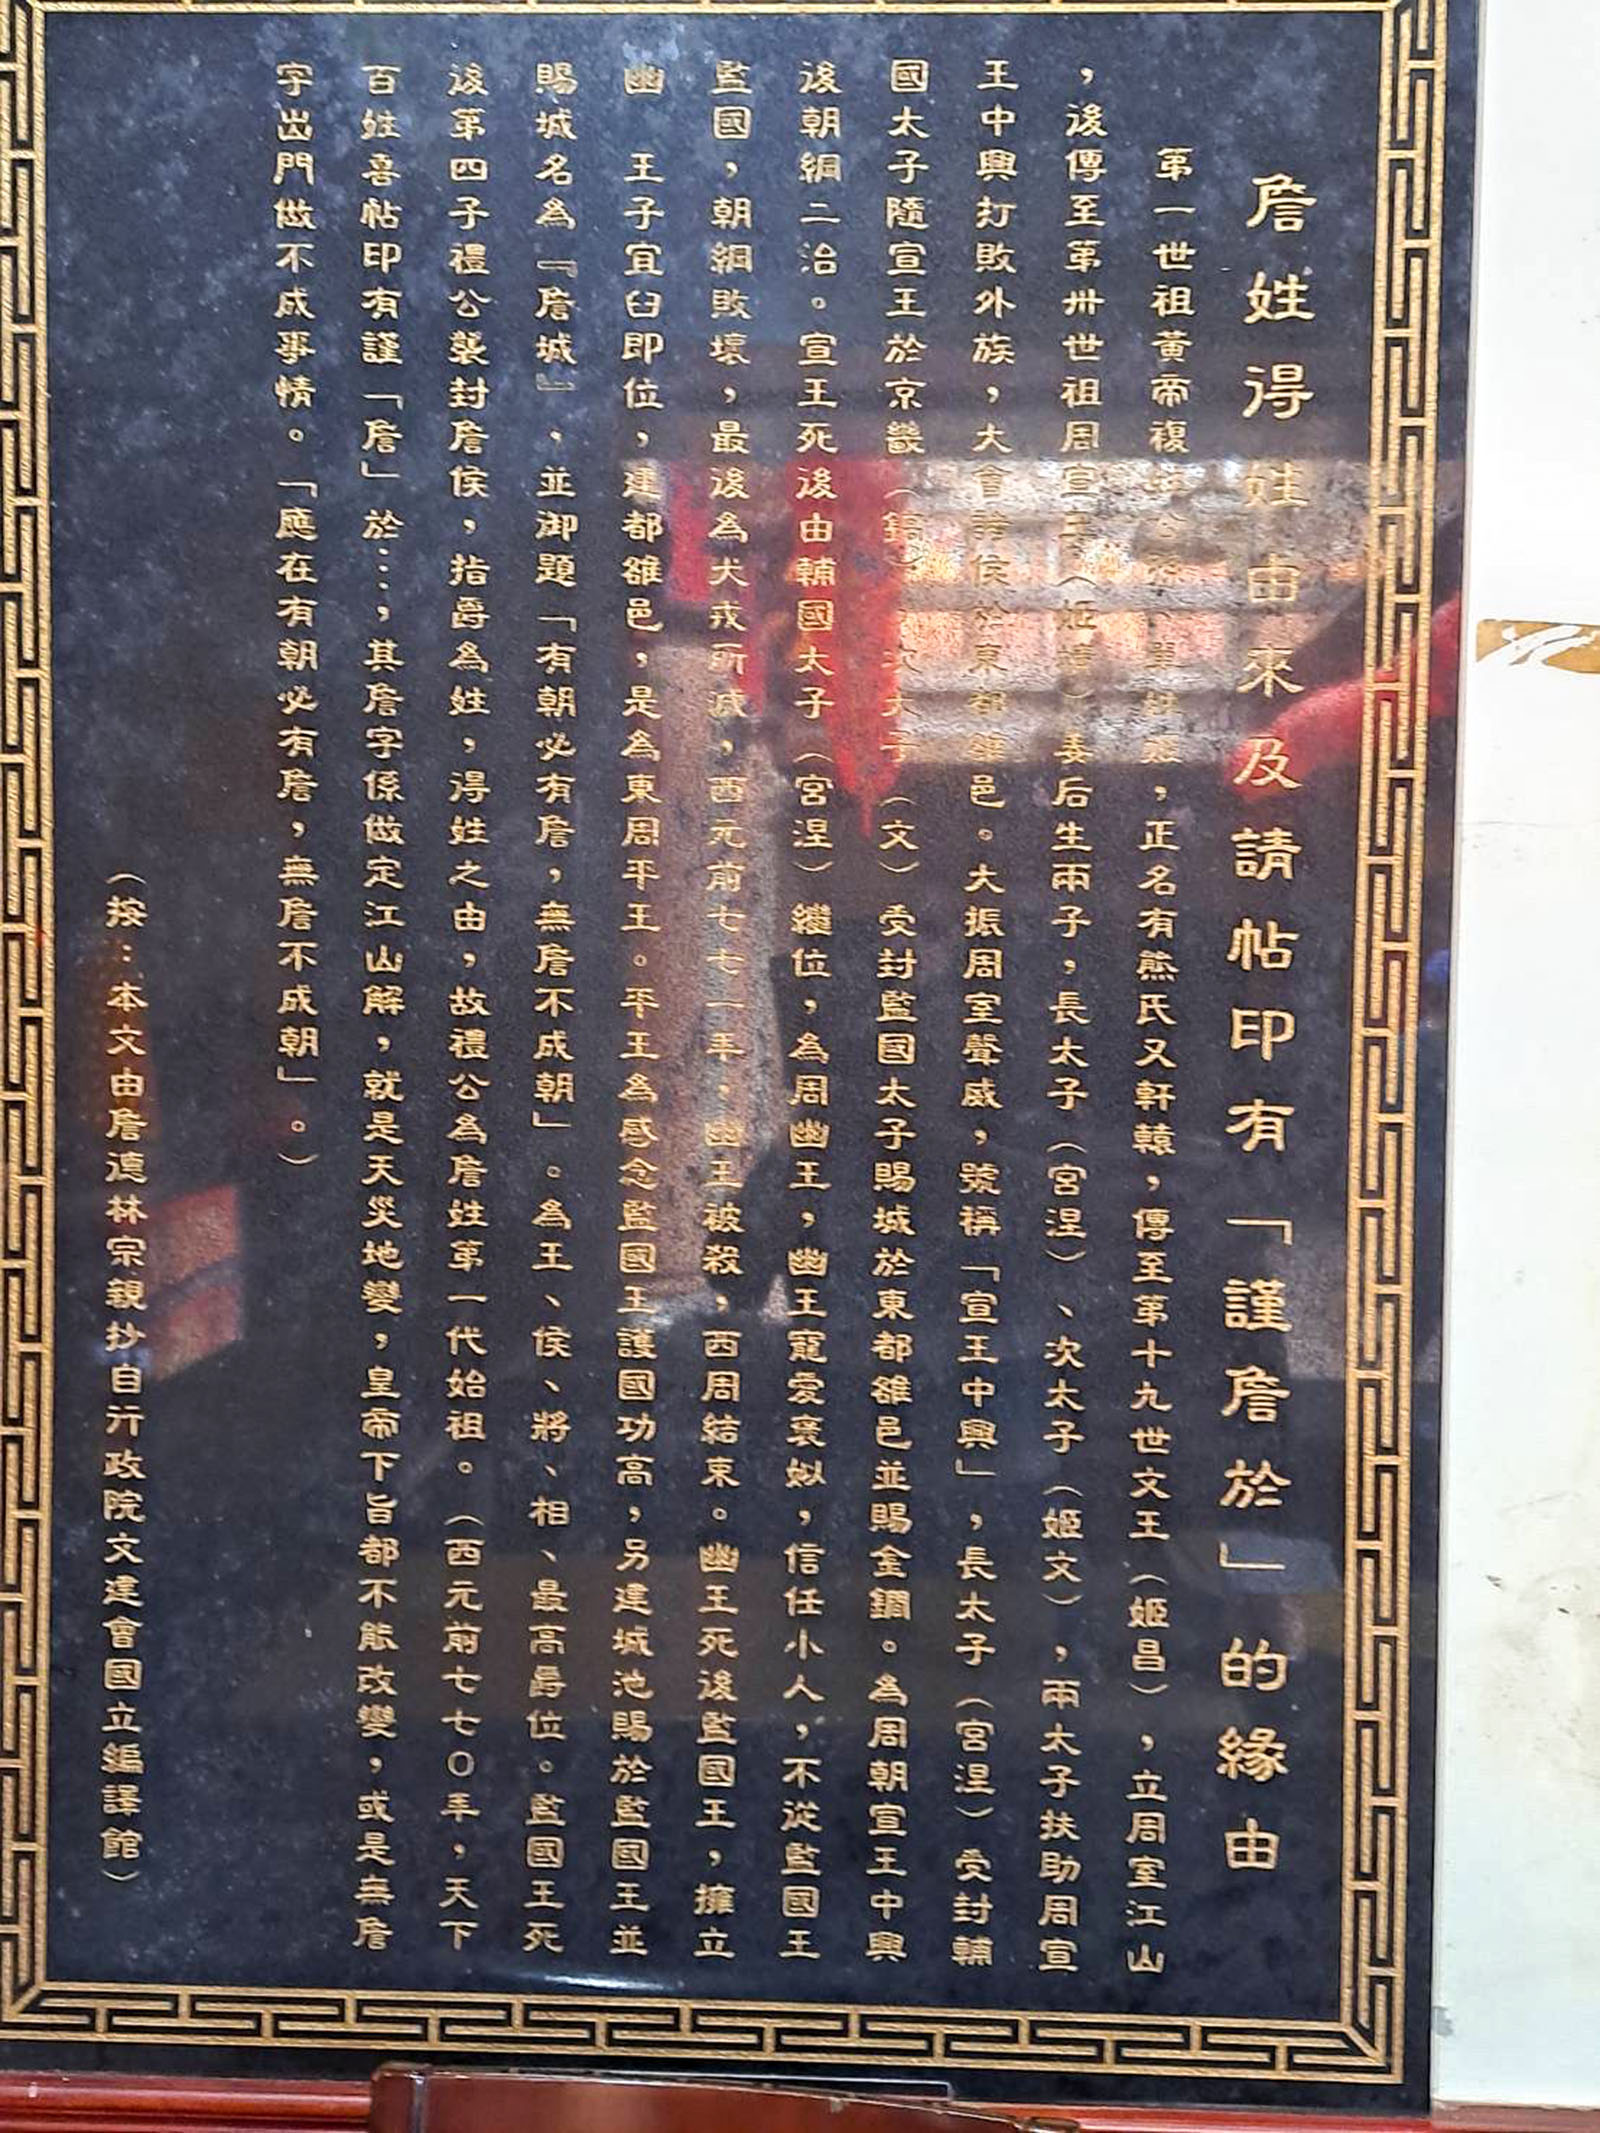 詹姓得姓由來及請帖印有「謹詹於」的緣由
第一世祖黃帝複姓公孫、單姓姬，正名有熊氏又軒轅，傳至第十九世文王（姬昌），立周室江山
，後傳至第卅世祖周宣王（姬靖）姜后生兩子，長太子（宮涅）、次太子（姬文），兩太子扶助周宣
王中興打敗外族，大會諸侯於東都雒邑。大振周室聲威，號稱「宣王中興」，長太子（宮涅）受封輔
國太子隨宣王於京畿（鎬）次太子（文）受封監國太子賜城於東都雒邑並賜金鐧。為周朝宣王中興
後朝綱二治。宣王死後由輔國太子（宮涅）繼位，為周幽王，幽王寵愛褒姒，信任小人，不從監國王
監國，朝綱敗壞，最後為犬戎所滅，西元前七七一年，幽王被殺，西周結束。幽王死後監國王，擁立
幽　王子宜臼即位，建都雒邑，是為東周平王。平王為感念監國王護國功高，另建城池賜於監國王並
賜城名為『詹城』，並御題「有朝必有詹，無詹不成朝」。為王、侯、將、相、最高爵位。監國王死
後第四子禮公襲封詹侯，指爵為姓，得姓之由，故禮公為詹姓第一代始祖。（西元前七七０年，天下
百姓喜帖印有謹「詹」於…，其詹字係做定江山解，就是天災地變，皇帝下旨都不能改變，或是無詹
字出門做不成事情。「應在有朝必有詹，無詹不成朝」。）
（按：本文由詹德林宗親抄自行政院文建會國立編譯館）